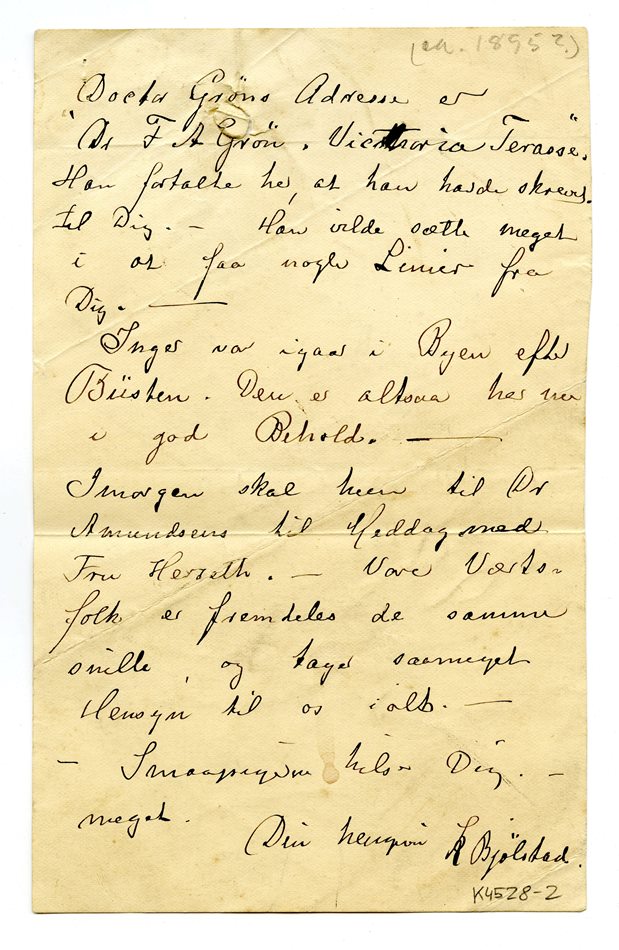 (ca. 1895?)
Doctor Gröns Adresse er
"Dr F A Grön. Victoria Terasse".
Han fortalte her, at han havde skrevet
til Dig. — Han vilde sætte meget
i at faa nogle Linier fra
Dig. —
Inger var igaar i Byen efter
Büsten. Den er altsaa her nu
i god Behold. —
Imorgen skal hun til Dr
Amundsens til Meddag med
Fru Herseth. — Vore Værts-
folk er fremdeles de samme
snille, og tager saameget
Hensyn til os i alt. —
— Smaapigerne hilser Dig. —
meget.
Din hengivne K Bjölstad.
K4528-2